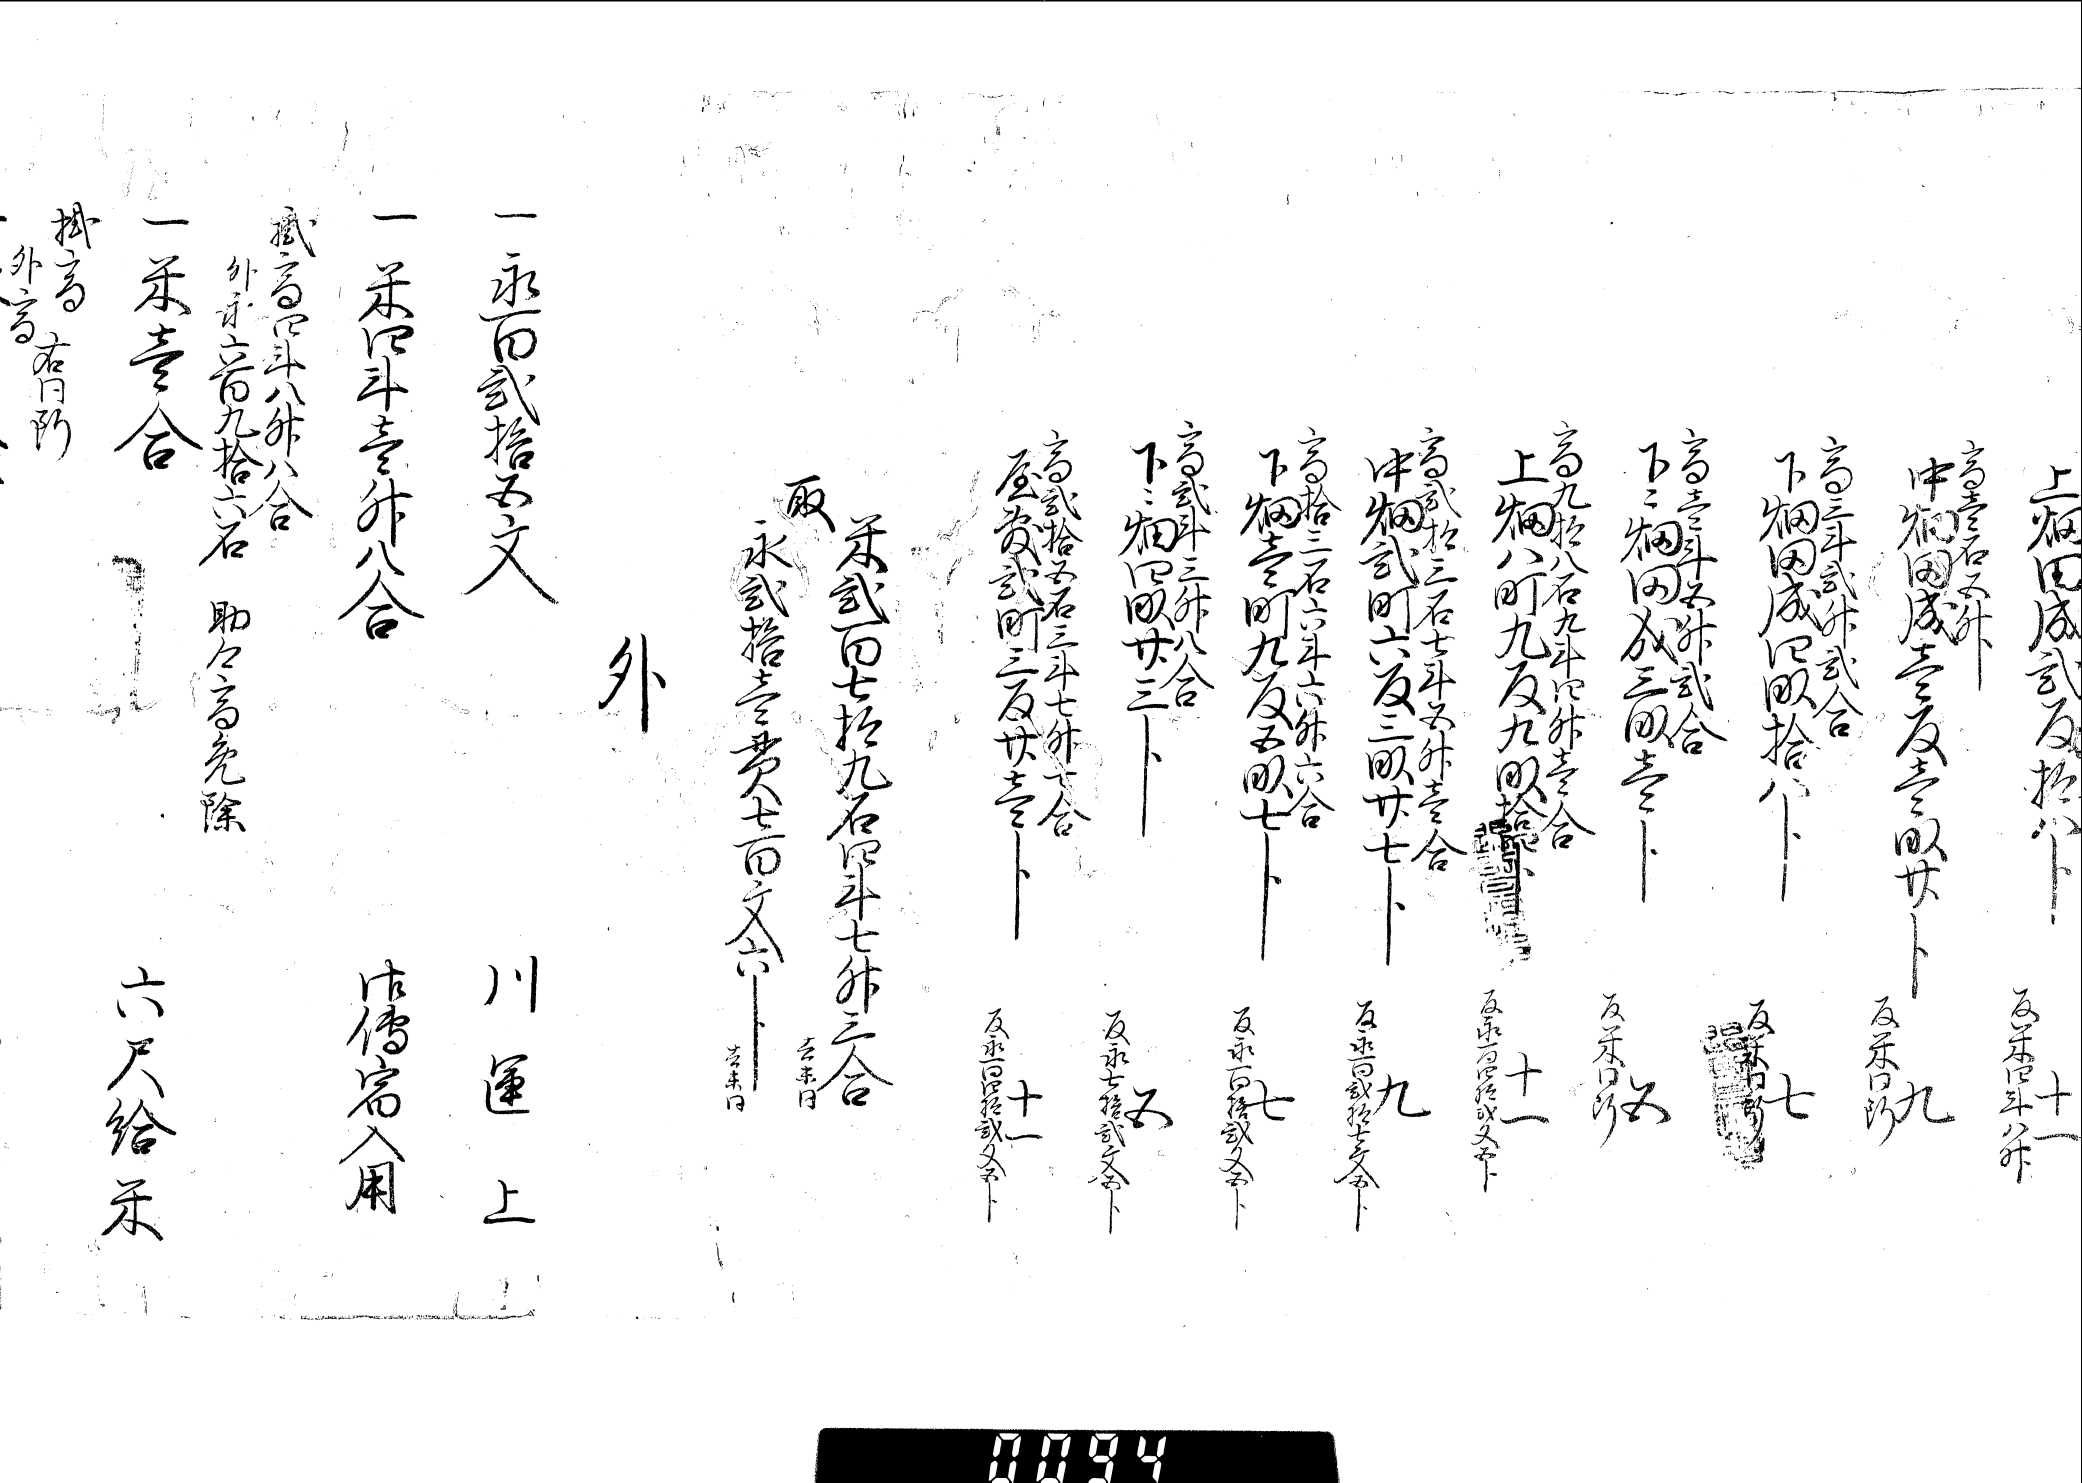 上畑田成弐反拾八卜
十一
反米四斗八升
高壱石五升
中畑田成壱反壱畝廿卜
九
反米同断
高三斗弐升弐合
下畑田成四畝拾八卜
七
反米同断
高壱斗五升弐合
下々畑田成三畝壱卜
五
反米同断
高九拾八石九斗四升壱合
上畑八町九反九畝拾四卜
十一
反永百四拾弐文五卜
高弐拾三石七斗五升壱合
中畑弐町六反三畝廿七卜
九
反永百弐拾七文五卜
高拾三石六斗六升六合
下畑壱町九反五畝七卜
七
反永百拾弐文五卜
高弐斗三升八合
下々畑四畝廿三卜
五
反永七拾弐文五卜
高弐拾五石三斗七升七合
屋敷弐町三反廿壱卜
十一
反永百四拾弐文五卜
米弐百七拾九石四斗七升三合
去来同
取
永弐拾壱貫七百文六卜
去来同
外
一 永百弐拾五文 川運上
一 米四斗壱升八合 御伝宿入用
掛高四斗八升八合
外永六百九拾六石 助々高免除
一 米壱合 六尺給米
掛高 右同断
外高
0094